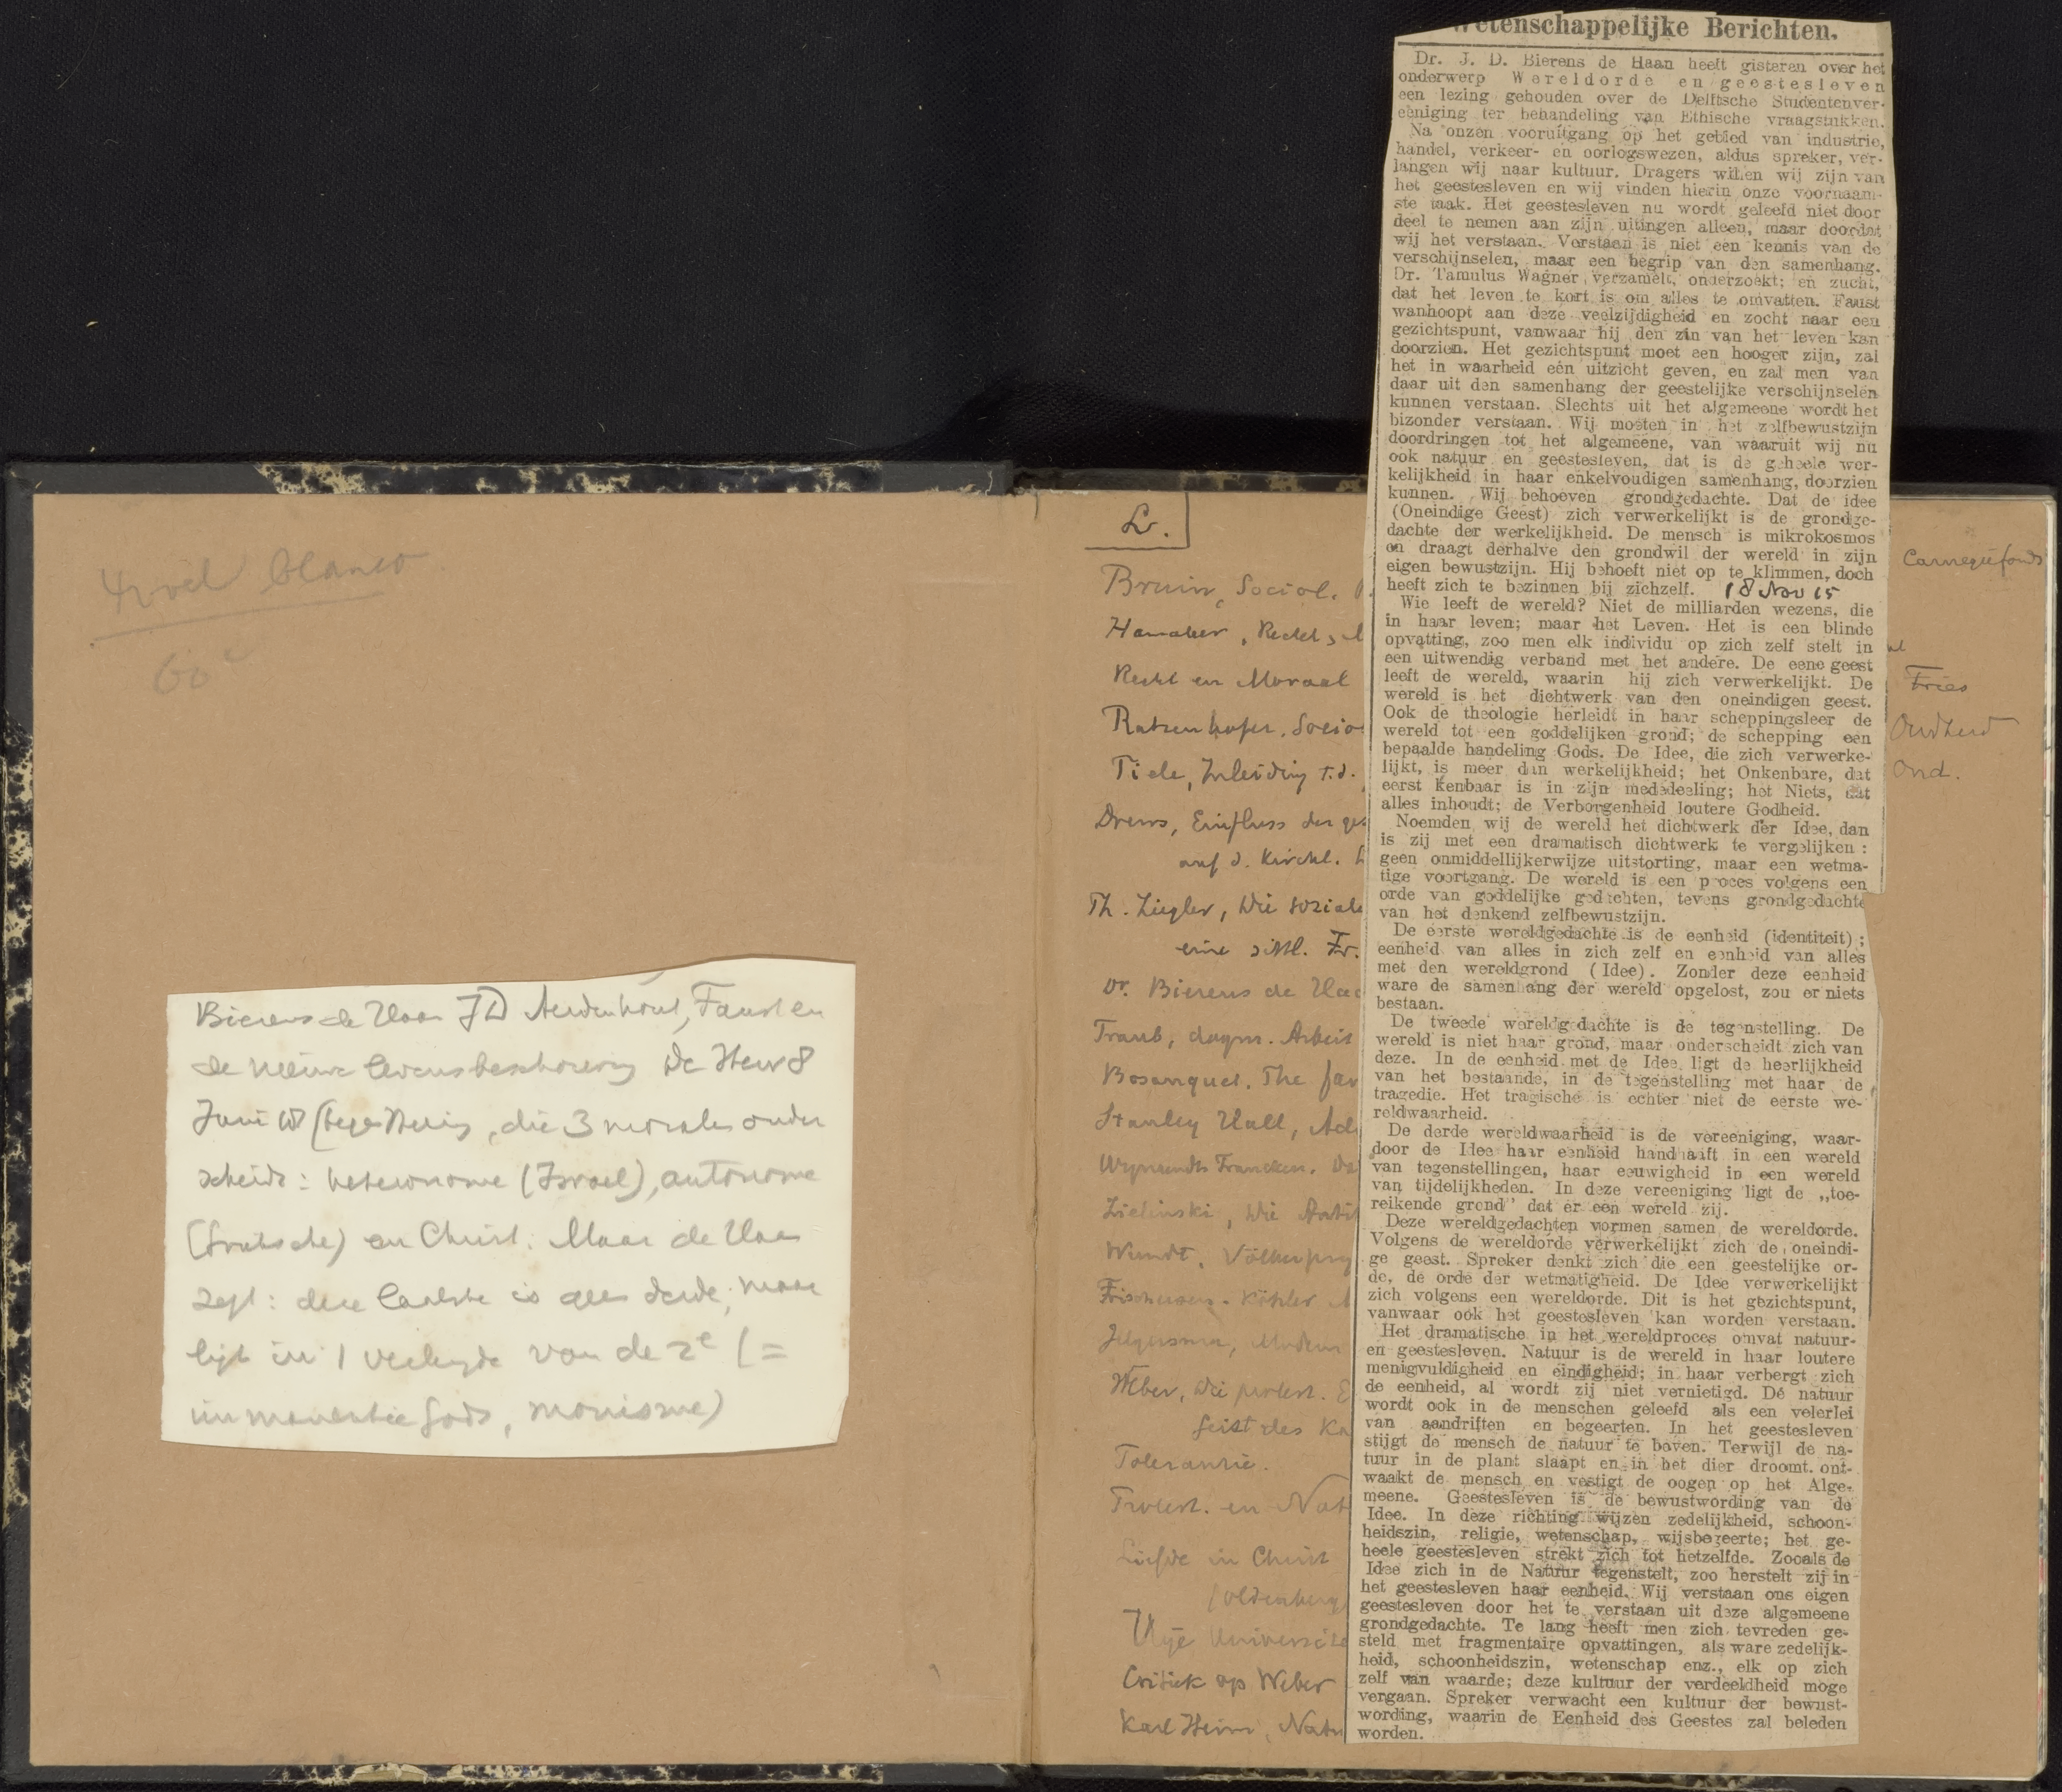 blanco
60 c
Bierens de Haan JD Aerdenhout, Faust en
de nieuwe levensbeschouwing De Heer 8
Juni 18 (tege Hering, die 3 morales onder
scheidt: heteronome (Israel), autonome
en Christ. Maar de Haan
zegt: deze laatste is geen derde; maar
ligt in 1 verlengde van de 2e (=
immanentie Gods, monisme)
L.
Bruin, Sociol.
Hamaker, Recht,
Recht en Moraal
Ratzenhofer, Socio
Tiele, Inleiding t.d.
Drews, Einfluss der ges
auf d. kirchl.
Th. Ziegler, Die soziale
eine sittl. Fr.
Dr. Bierens de Haa
Traub, dogm. Arbeit
Bosanquet, The
Stanley Hall, Ad
Wynaendts Francken, Da
Zielinski, Die Anti
Wundt, Völkerpsy
Frischeisen-Köhler M
Jelgersma, Modern
Weber, Die protest. E
Geist des Ka
Tolerantie.
Protest. en Nat
Liefde in Christ
(Oldenberg
Vrije Universite
Critiek op Weber
Karl Heim, Natu
Carnegiefonds
Fries
Oudheid
Oud.
Wetenschappelijke Berichten.
Dr. J. D. Bierens de Haan heeft gisteren over het
onderwerp Wereldorde en geestesleven
een lezing gehouden over de Delftsche Studentenver-
eeniging ter behandeling van Ethische vraagstukken.
Na onzen vooruitgang op het gebied van industrie,
handel, verkeer- en oorlogswezen, aldus spreker, ver-
langen wij naar kultuur. Dragers willen wij zijn van
het geestesleven en wij vinden hierin onze voornaam-
ste taak. Het geestesleven nu wordt geleefd niet door
deel te nemen aan zijn uitingen alleen, maar doordat
wij het verstaan. Verstaan is niet een kennis van de
verschijnselen, maar een begrip van den samenhang.
Dr. Tamulus Wagner verzamelt, onderzoekt; en zucht,
dat het leven te kort is om alles te omvatten. Faust
wanhoopt aan deze veelzijdigheid en zocht naar een
gezichtspunt, vanwaar hij den zin van het leven kan
doorzien. Het gezichtspunt moet een hooger zijn, zal
het in waarheid een uitzicht geven, en zal men van
daar uit den samenhang der geestelijke verschijnselen
kunnen verstaan. Slechts uit het algemeene wordt het
bizonder verstaan. Wij moeten in het zelfbewustzijn
doordringen tot het algemeene, van waaruit wij nu
ook natuur en geestesleven, dat is de geheele wer-
kelijkheid in haar enkelvoudigen samenhang, doorzien
kunnen. Wij behoeven grondgedachte. Dat de idee
(Oneindige Geest) zich verwerkelijkt is de grondge-
dachte der werkelijkheid. De mensch is mikrokosmos
en draagt derhalve den grondwil der wereld in zijn
eigen bewustzijn. Hij behoeft niet op te klimmen, doch
heeft zich te bezinnen bij zichzelf. 18 Nov 15
Wie leeft de wereld? Niet de milliarden wezens, die
in haar leven; maar het Leven. Het is een blinde
opvatting, zoo men elk individu op zich zelf stelt in
een uitwendig verband met het andere. De eene geest
leeft de wereld, waarin hij zich verwerkelijkt. De
wereld is het dichtwerk van den oneindigen geest.
Ook de theologie herleidt in haar scheppingsleer de
wereld tot een goddelijken grond; de schepping een
bepaalde handeling Gods. De Idee, die zich verwerke-
lijkt, is meer dan werkelijkheid; het Onkenbare, dat
eerst kenbaar is in zijn mededeeling; het Niets, dat
alles inhoudt; de Verborgenheid loutere Godheid.
Noemden wij de wereld het dichtwerk der Idee, dan
is zij met een dramatisch dichtwerk te vergelijken:
geen onmiddellijkerwijze uitstorting, maar een wetma-
tige voortgang. De wereld is een proces volgens een
orde van goddelijke gedachten, tevens grondgedachte
van het denkend zelfbewustzijn.
De eerste wereldgedachte is de eenheid (identiteit);
eenheid van alles in zich zelf en eenheid van alles
met den wereldgrond (Idee). Zonder deze eenheid
ware de samenhang der wereld opgelost, zou er niets
bestaan.
De tweede wereldgedachte is de tegenstelling. De
wereld is niet haar grond, maar onderscheidt zich van
deze. In de eenheid met de Idee ligt de heerlijkheid
van het bestaande, in de tegenstelling met haar de
tragedie. Het tragische is echter niet de eerste we-
reldwaarheid.
De derde wereldwaarheid is de vereeniging, waar-
door de Idee haar eenheid handhaaft in een wereld
van tegenstellingen, haar eeuwigheid in een wereld
van tijdelijkheden. In deze vereeniging ligt de „toe-
reikende grond” dat er een wereld zij.
Deze wereldgedachten vormen samen de wereldorde.
Volgens de wereldorde verwerkelijkt zich de oneindi-
ge geest. Spreker denkt zich die een geestelijke or-
de, de orde der wetmatigheid. De Idee verwerkelijkt
zich volgens een wereldorde. Dit is het gezichtspunt,
vanwaar ook het geestesleven kan worden verstaan.
Het dramatische in het wereldproces omvat natuur-
en geestesleven. Natuur is de wereld in haar loutere
menigvuldigheid en eindigheid; in haar verbergt zich
de eenheid, al wordt zij niet vernietigd. De natuur
wordt ook in de menschen geleefd als een velerlei
van aandriften en begeerten. In het geestesleven
stijgt de mensch de natuur te boven. Terwijl de na-
tuur in de plant slaapt en in het dier droomt, ont-
waakt de mensch en vestigt de oogen op het Alge-
meene. Geestesleven is de bewustwording van de
Idee. In deze richting wijzen zedelijkheid, schoon-
heidszin, religie, wetenschap, wijsbegeerte; het ge-
heele geestesleven strekt zich tot hetzelfde. Zooals de
Idee zich in de Natuur tegenstelt, zoo herstelt zij in
het geestesleven haar eenheid. Wij verstaan ons eigen
geestesleven door het te verstaan uit deze algemeene
grondgedachte. Te lang heeft men zich tevreden ge-
steld met fragmentaire opvattingen, als ware zedelijk-
heid, schoonheidszin, wetenschap enz., elk op zich
zelf van waarde; deze kultuur der verdeeldheid moge
vergaan. Spreker verwacht een kultuur der bewust-
wording, waarin de Eenheid des Geestes zal beleden
worden.